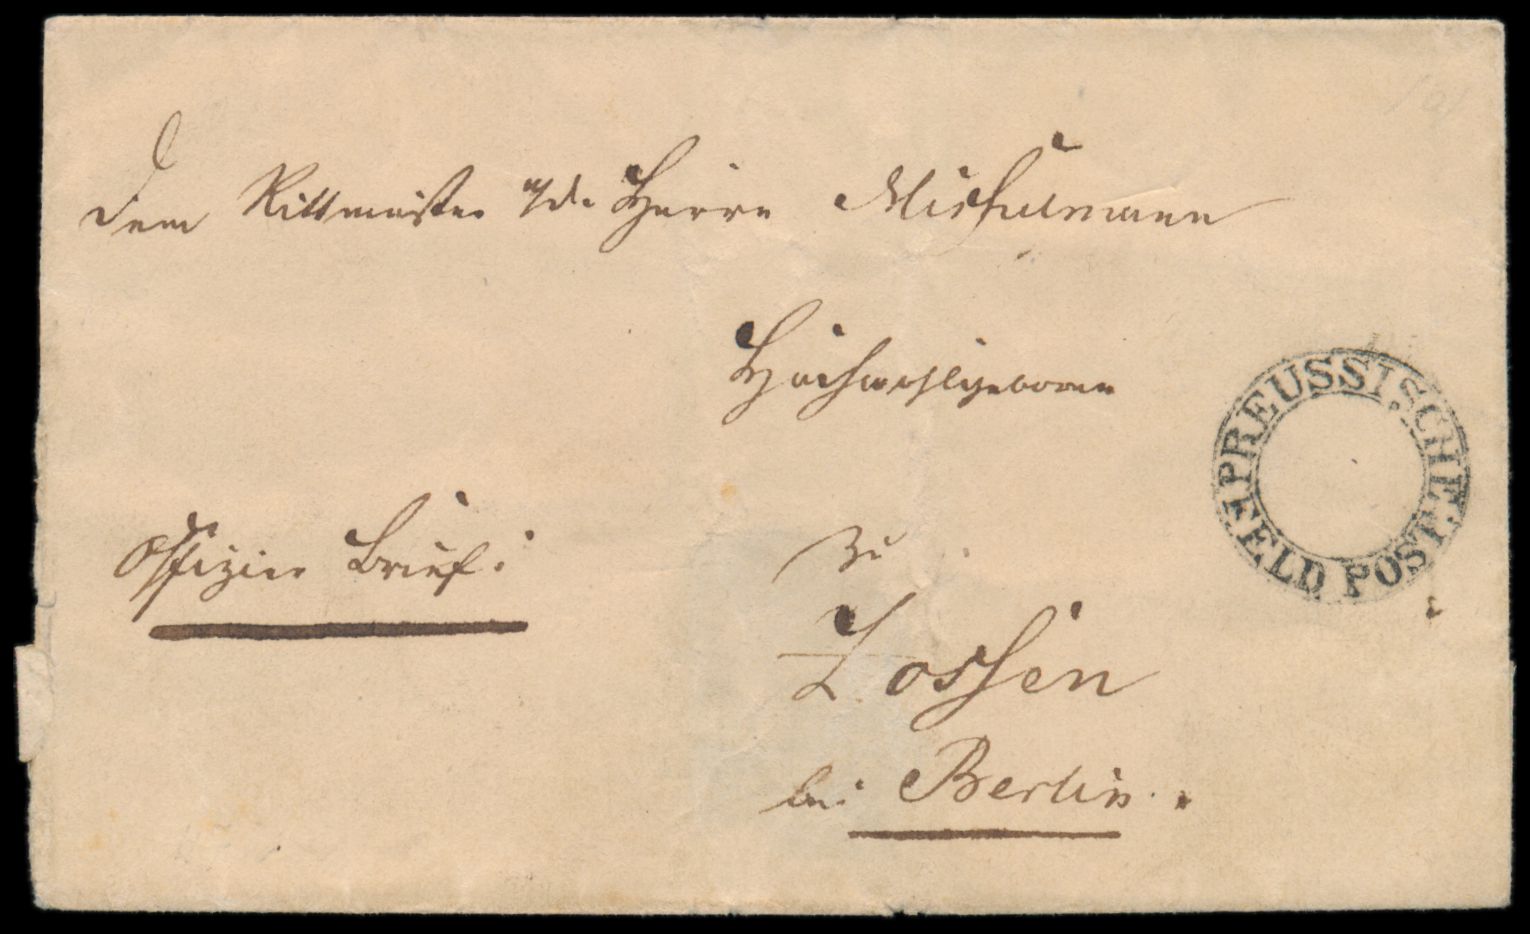 Dem Rittmeister a/d. Herrn
Hochwohlgeboren
PREUSSISCHE
FELD POST
Offizier Brief.
zu
Zossen
bei Berlin.